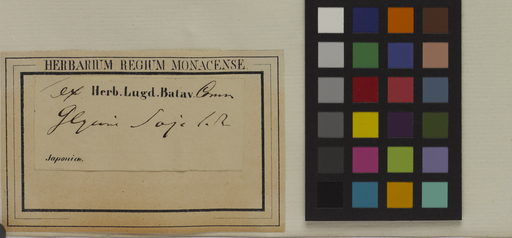 HERBARIUM REGIUM MONACENSE.
ex Herb. Lugd. Batav.
Soja
Japonia.